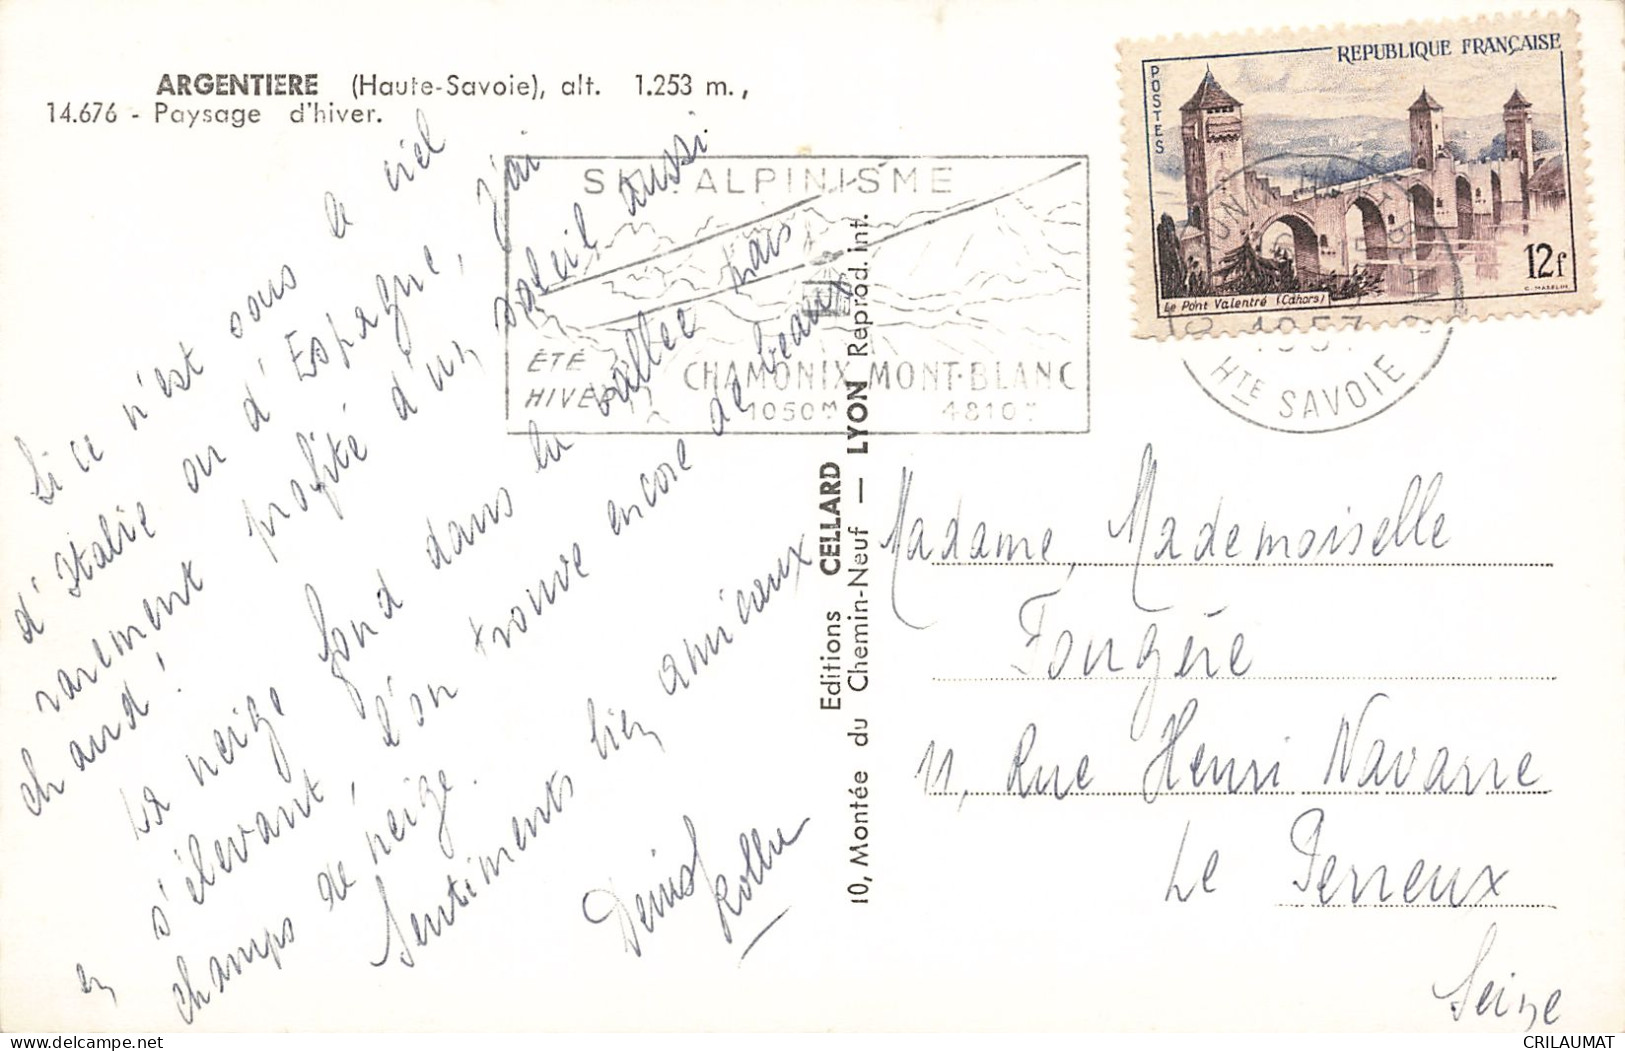 ARGENTIERE (Haute-Savoie), alt. 1.253 m.,
14.676 - Paysage d'hiver.
Si ce n'est sous le ciel
d'Italie ou d'Espagne, j'ai
rarement profité d'un soleil aussi
chaud !
La neige fond dans la vallée mais
en s'élevant, l'on trouve encore de beaux
champs de neige.
Sentiments bien amicaux
Denis
SKI ALPINISME
ÉTÉ
HIVER
CHAMONIX MONT-BLANC
1050M 4810M
Editions CELLARD
10, Montée du Chemin-Neuf — LYON Reprod. int.
REPUBLIQUE FRANÇAISE
POSTES
12f
Le Pont Valentré (Cahors)
C. MAZELIN
1957
HTE SAVOIE
Madame, Mademoiselle
Fougère
11, Rue Henri Navarre
Le Perreux
Seine
CRILAUMAT